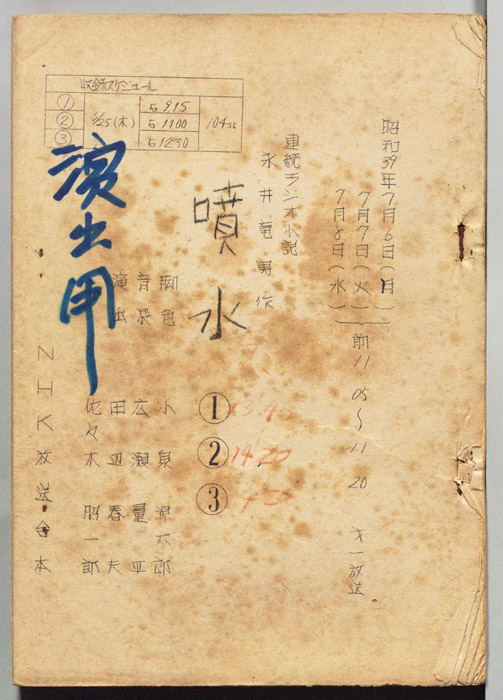 昭和39年7月6日(月)
7月7日(火)
7月8日(水)
前11.05〜11.20 才一放送
連続ラジオ小説
永井竜男 作
噴水
① 
② 14'20
③
脚色 小泉源太郎
音楽 広瀬量平
田辺春夫
演出 佐々木昭一郎
NHK放送台本
演出用
収録スケジュール
① ② ③
6/25(木)
5 915
5 1100
5 1250
104st